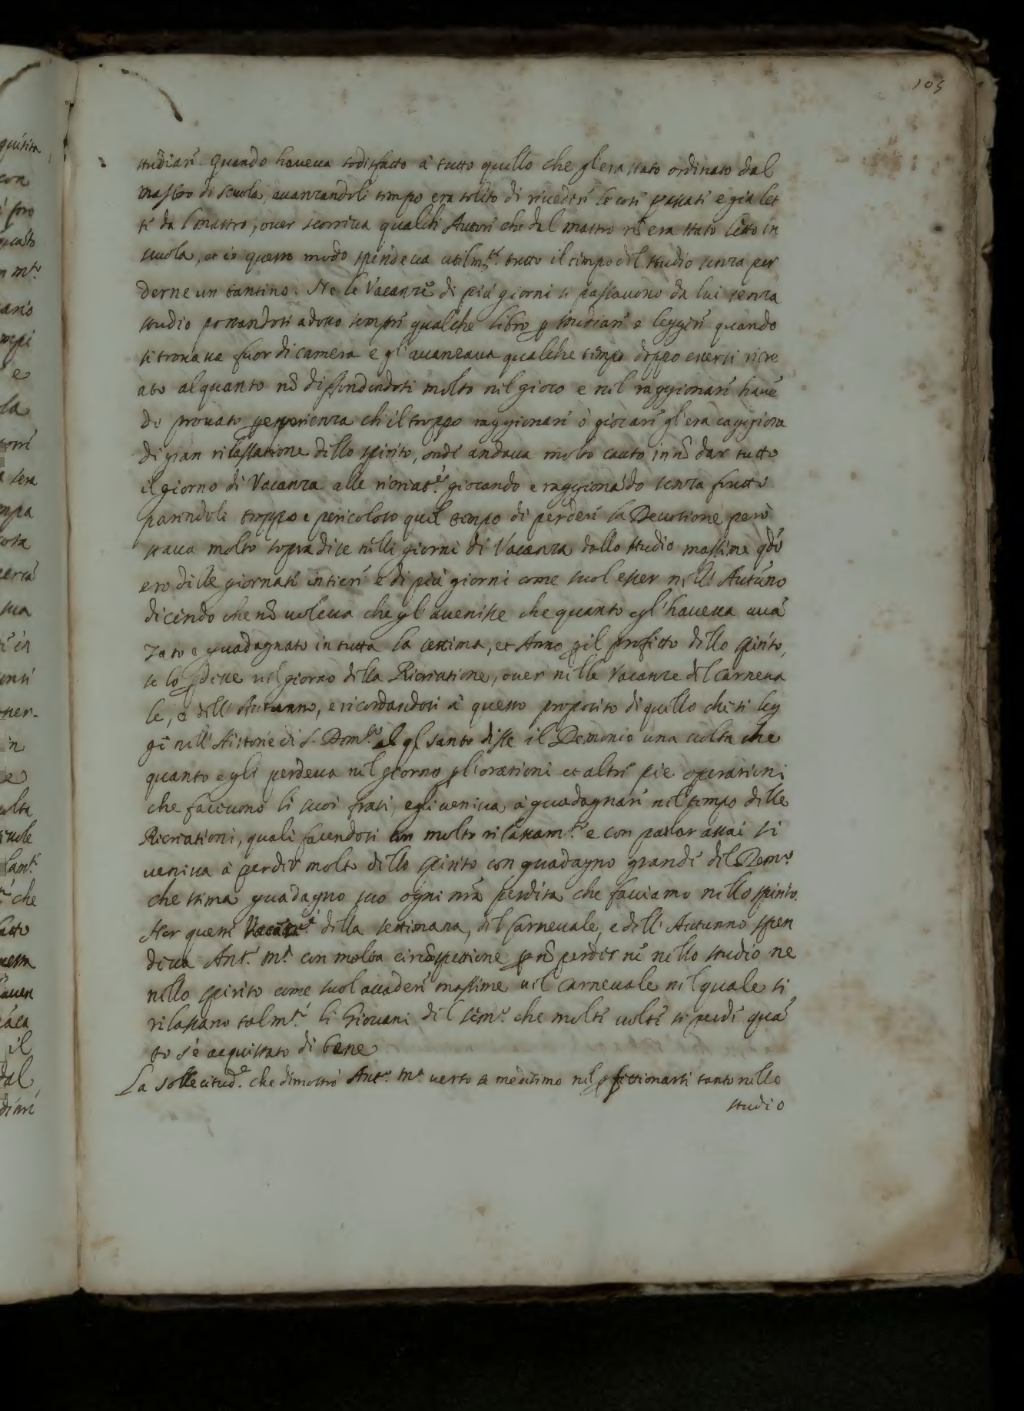 105
studiari. Quando haveua sodisfatto à tutto quello che gl'era stato ordinato dal
mastro di scuola, auanzandoli tempo era solito di riuederi le cose passati e gia let
ti da l mastro, ouer scorriua qualch' Autori che dal mastro nō era stato letto in
scuola, et in questo modo spendeua utilm.te tutto il tempo del studio senza per
derne un tantino. Ne le Vacanze di più giorni si passauono da lui senza
studio portandosi adosso sempri qualche libro p studiari e leggeri quando
si trouaua fuor di camera e gl'auanzaua qualche tempo doppo essersi ricre
ato alquanto nō diffondendosi molto nel gioco e nel raggionari hauē
do prouato p esperienza ch'il troppo raggionari ò giocari gl'era caggiona
di gran rilassatione dello spirito, onde andaua molto cauto in nō dar tutto
il giorno di Vacanza alle ricreat.i giocando e raggionādo senza frutto
parendoli troppo e pericoloso quel tempo di perderi la Deuotione però
staua molto sopra di se nelli giorni di Vacanza dallo studio massime qdo
ero delle giornati intieri e di più giorni come suol esser nell' Autūno
dicendo che nō uoleua che gl'auenisse che quanto egl'haueua auā
zato e guadagnato in tutta la settima, et Anno p il profitto dello spirito,
se lo pdesse nel giorno della Ricreatione, ouer nelle Vacanze del Carneua
le, e dell' Autunno, e ricordandosi à questo proposito di quello che si leg
gi nell' Historie di S. Dom.co al ql santo disse il Demonio una uolta che
quanto egli perdeua nel giorno p l'orationi et altri pie operationi
che faceuono li suoi frati egli ueniua à guadagnari nel tempo delle
Ricreationi, quali facendosi con molto rilassam.to e con parlar assai si
ueniua à perder molto dello spirito con guadagno grandi del Dem.o
che stima guadagno suo ogni nr̄a perdita che facciamo nello spirito.
Per questi Vacanze della settimana, del Carneuale, e dell' Autunno spen
deua Ant.o m.a con molta circōspettione p nō perder nè nello studio ne
nello spirito come suol accaderi massime nel Carneuale nel quale si
rilassano talm.te li Giouani del sem.o che molti uolti si perdi quā
to s'è acquistato di bene
La sollecitud.e che dimostrò Ant.o m.a uerso se medesimo nel pfettionarsi tanto nello
studio